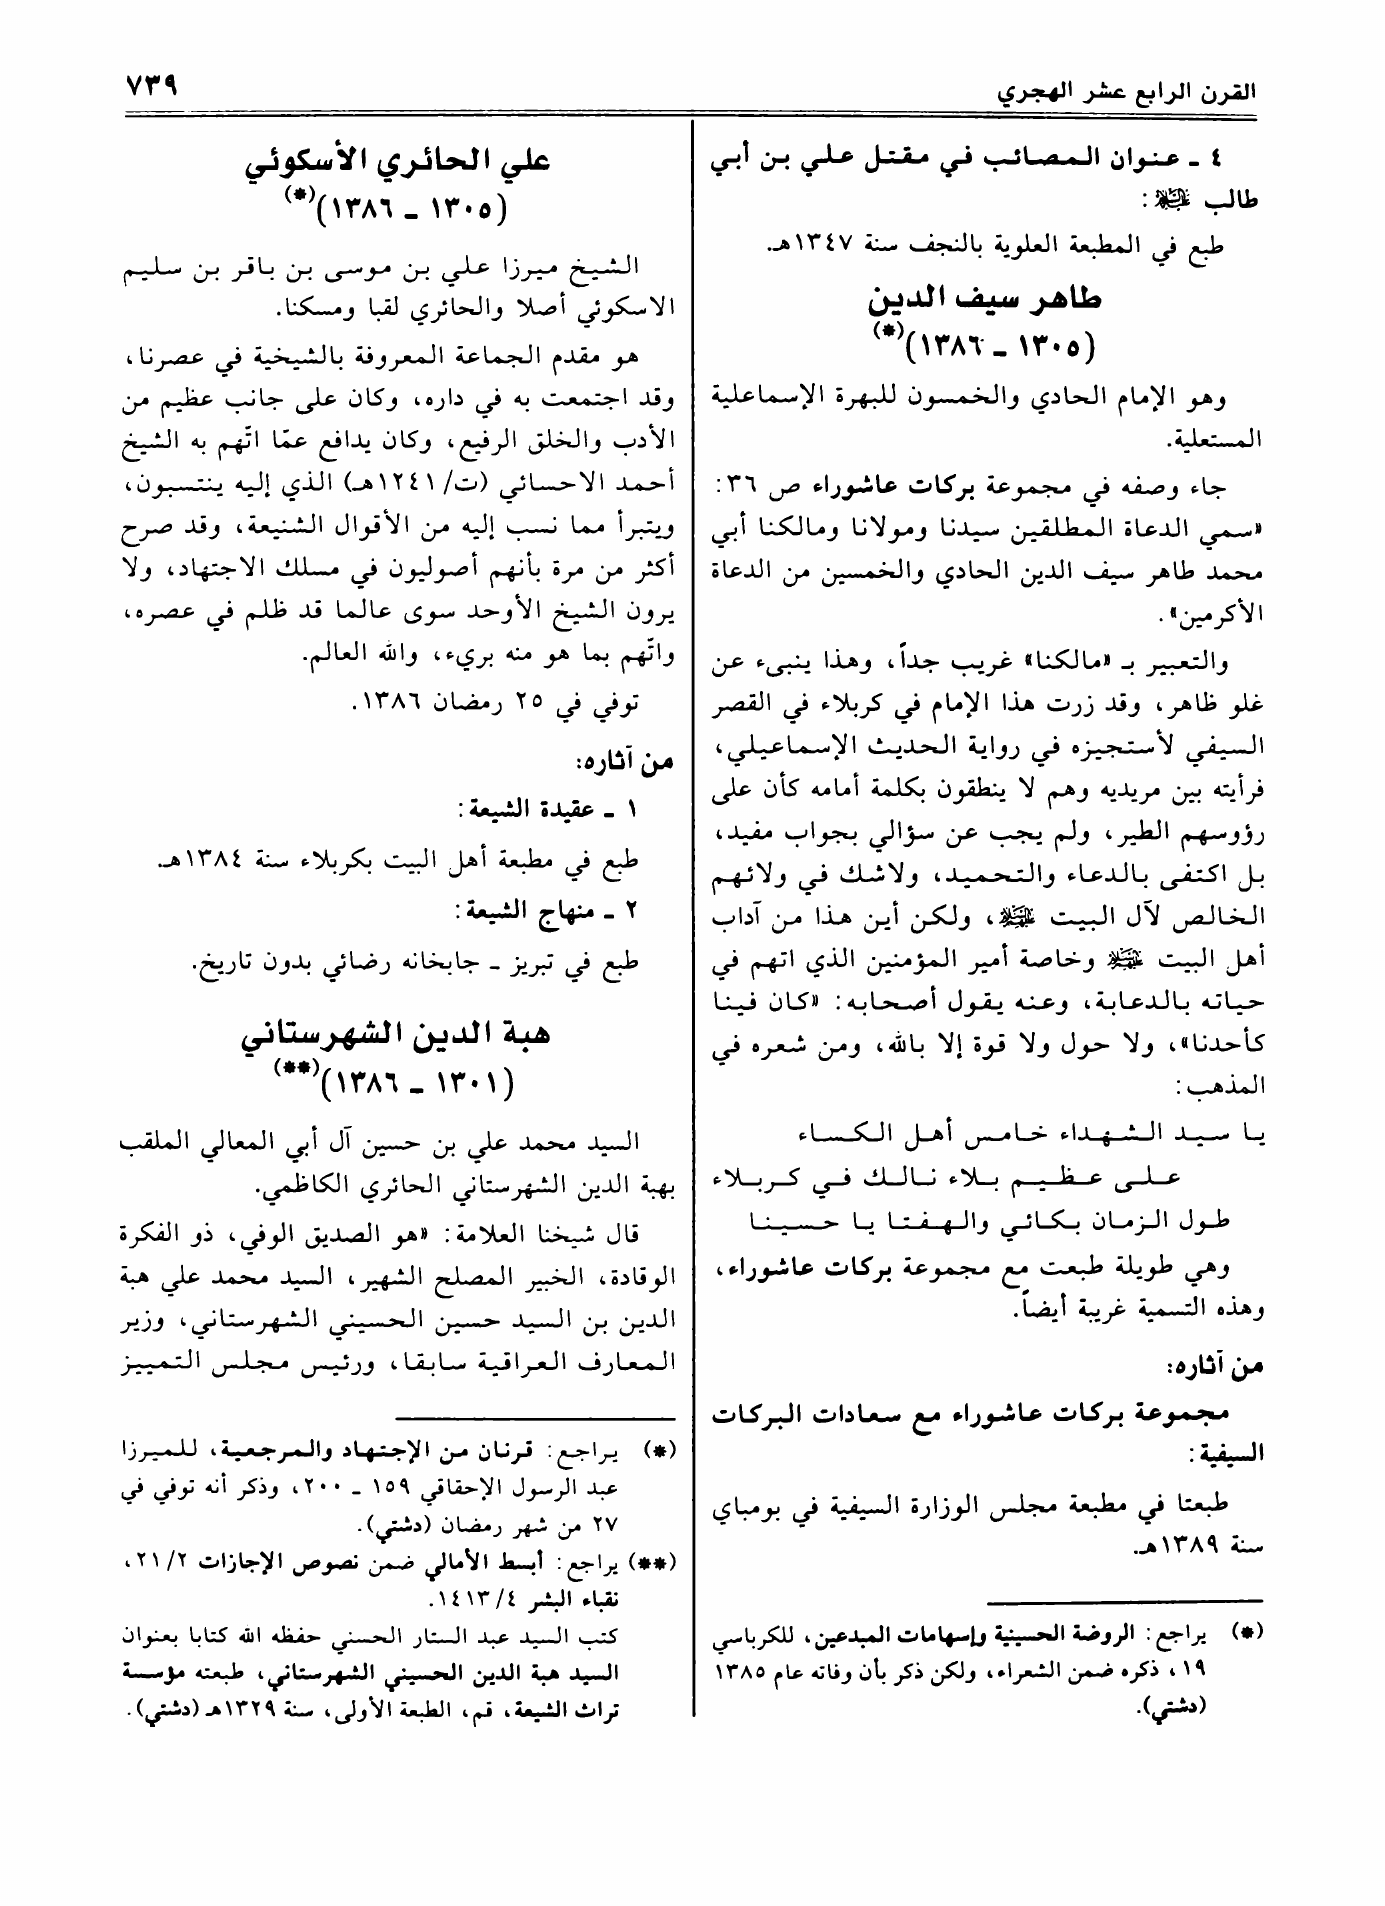 القرن الرابع عشر الهجري
٧٣٩
٤ ـ عنوان المصائب في مقتل علي بن أبي
طالب عليه السلام :
طبع في المطبعة العلوية بالنجف سنة ١٣٤٧هـ.
طاهر سيف الدين
(١٣٠٥ ـ ١٣٨٦)(*)
وهو الإمام الحادي والخمسون للبهرة الإسماعلية
المستعلية.
جاء وصفه في مجموعة بركات عاشوراء ص ٣٦:
«سمي الدعاة المطلقين سيدنا ومولانا ومالكنا أبي
محمد طاهر سيف الدين الحادي والخمسين من الدعاة
الأكرمين».
والتعبير بـ «مالكنا» غريب جداً، وهذا ينبىء عن
غلو ظاهر، وقد زرت هذا الإمام في كربلاء في القصر
السيفي لأستجيزه في رواية الحديث الإسماعيلي،
فرأيته بين مريديه وهم لا ينطقون بكلمة أمامه كأن على
رؤوسهم الطير، ولم يجب عن سؤالي بجواب مفيد،
بل اكتفى بالدعاء والتحميد، ولاشك في ولائهم
الخالص لآل البيت ، ولكن أين هذا من آداب
أهل البيت وخاصة أمير المؤمنين الذي اتهم في
حياته بالدعابة، وعنه يقول أصحابه: «كان فينا
كأحدنا»، ولا حول ولا قوة إلا بالله، ومن شعره في
المذهب:
يا سيد الشهداء خامس أهل الكساء
على عظيم بلاء نالك في كربلاء
طول الزمان بكائي والهفتا يا حسينا
وهي طويلة طبعت مع مجموعة بركات عاشوراء،
وهذه التسمية غريبة أيضاً.
من آثاره:
مجموعة بركات عاشوراء مع سعادات البركات
السيفية:
طبعتا في مطبعة مجلس الوزارة السيفية في بومباي
سنة ١٣٨٩هـ.
(*) يراجع: الروضة الحسينية وإسهامات المبدعين، للكرباسي
١٩، ذكره ضمن الشعراء، ولكن ذكر بأن وفاته عام ١٣٨٥
(دشتي).
علي الحائري الأسكوئي
(١٣٠٥ ـ ١٣٨٦)(*)
الشيخ ميرزا علي بن موسى بن باقر بن سليم
الاسكوئي أصلا والحائري لقبا ومسكنا.
هو مقدم الجماعة المعروفة بالشيخية في عصرنا،
وقد اجتمعت به في داره، وكان على جانب عظيم من
الأدب والخلق الرفيع، وكان يدافع عمّا اتّهم به الشيخ
أحمد الاحسائي (ت/ ١٢٤١هـ) الذي إليه ينتسبون،
ويتبرأ مما نسب إليه من الأقوال الشنيعة، وقد صرح
أكثر من مرة بأنهم أصوليون في مسلك الاجتهاد، ولا
يرون الشيخ الأوحد سوى عالما قد ظلم في عصره،
واتّهم بما هو منه بريء، والله العالم.
توفي في ٢٥ رمضان ١٣٨٦.
من آثاره:
١ ـ عقيدة الشيعة:
طبع في مطبعة أهل البيت بكربلاء سنة ١٣٨٤هـ.
٢ ـ منهاج الشيعة:
طبع في تبريز ـ جابخانه رضائي بدون تاريخ.
هبة الدين الشهرستاني
(١٣٠١ ـ ١٣٨٦)(**)
السيد محمد علي بن حسين آل أبي المعالي الملقب
بهبة الدين الشهرستاني الحائري الكاظمي.
قال شيخنا العلامة: «هو الصديق الوفي، ذو الفكرة
الوقادة، الخبير المصلح الشهير، السيد محمد علي هبة
الدين بن السيد حسين الحسيني الشهرستاني، وزير
المعارف العراقية سابقا، ورئيس مجلس التمييز
(*) يراجع: قرنان من الإجتهاد والمرجعية، للميرزا
عبد الرسول الإحقاقي ١٥٩ ـ ٢٠٠، وذكر أنه توفي في
٢٧ من شهر رمضان (دشتي).
(**) يراجع: أبسط الأمالي ضمن نصوص الإجازات ٢/ ٢١،
نقباء البشر ٤/ ١٤١٣.
كتب السيد عبد الستار الحسني حفظه الله كتابا بعنوان
السيد هبة الدين الحسيني الشهرستاني، طبعته مؤسسة
تراث الشيعة، قم، الطبعة الأولى، سنة ١٣٢٩هـ (دشتي).